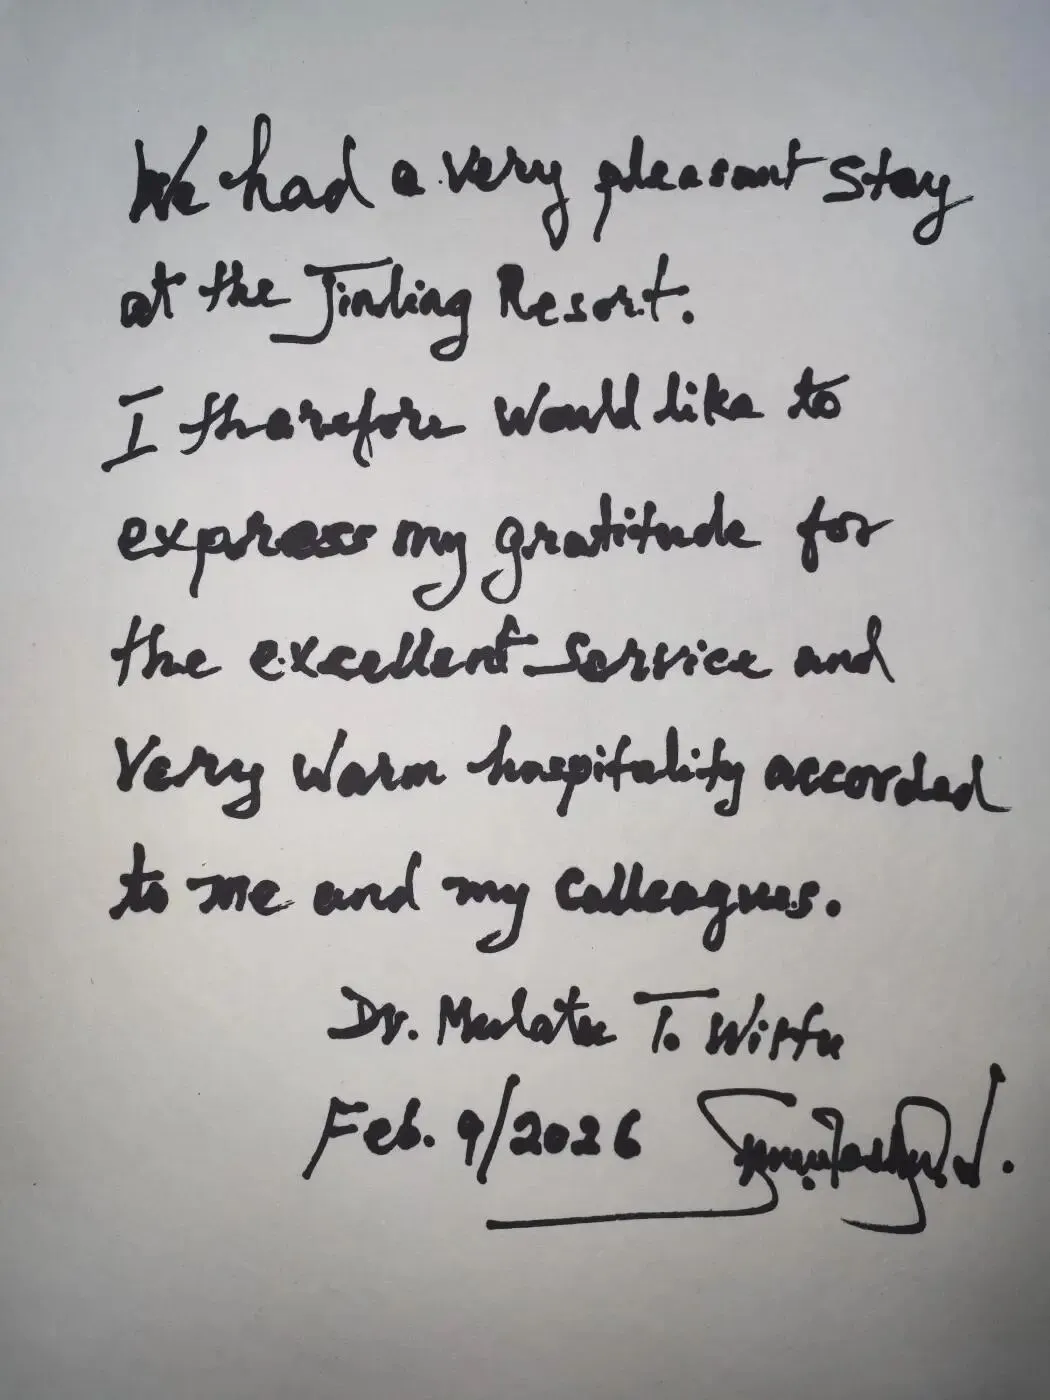 We had a very pleasant stay
at the Jinling Resort.
I therefore would like to
express my gratitude for
the excellent service and
very warm hospitality accorded
to me and my colleagues.
Dr. Mulatu T. Wirtu
Feb. 9/2026